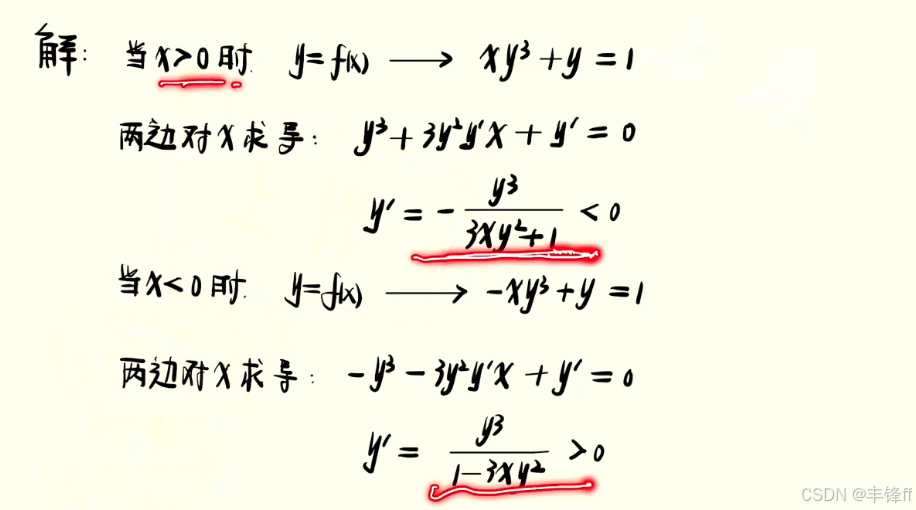 解: 当x>0时 y=f(x) ⟶ xy³+y=1
两边对x求导: y³+3y²y'x+y'=0
y'=-y³/(3xy²+1)<0
当x<0时 y=f(x) ⟶ -xy³+y=1
两边对x求导: -y³-3y²y'x+y'=0
y'=y³/(1-3xy²)>0
CSDN @丰锋ff